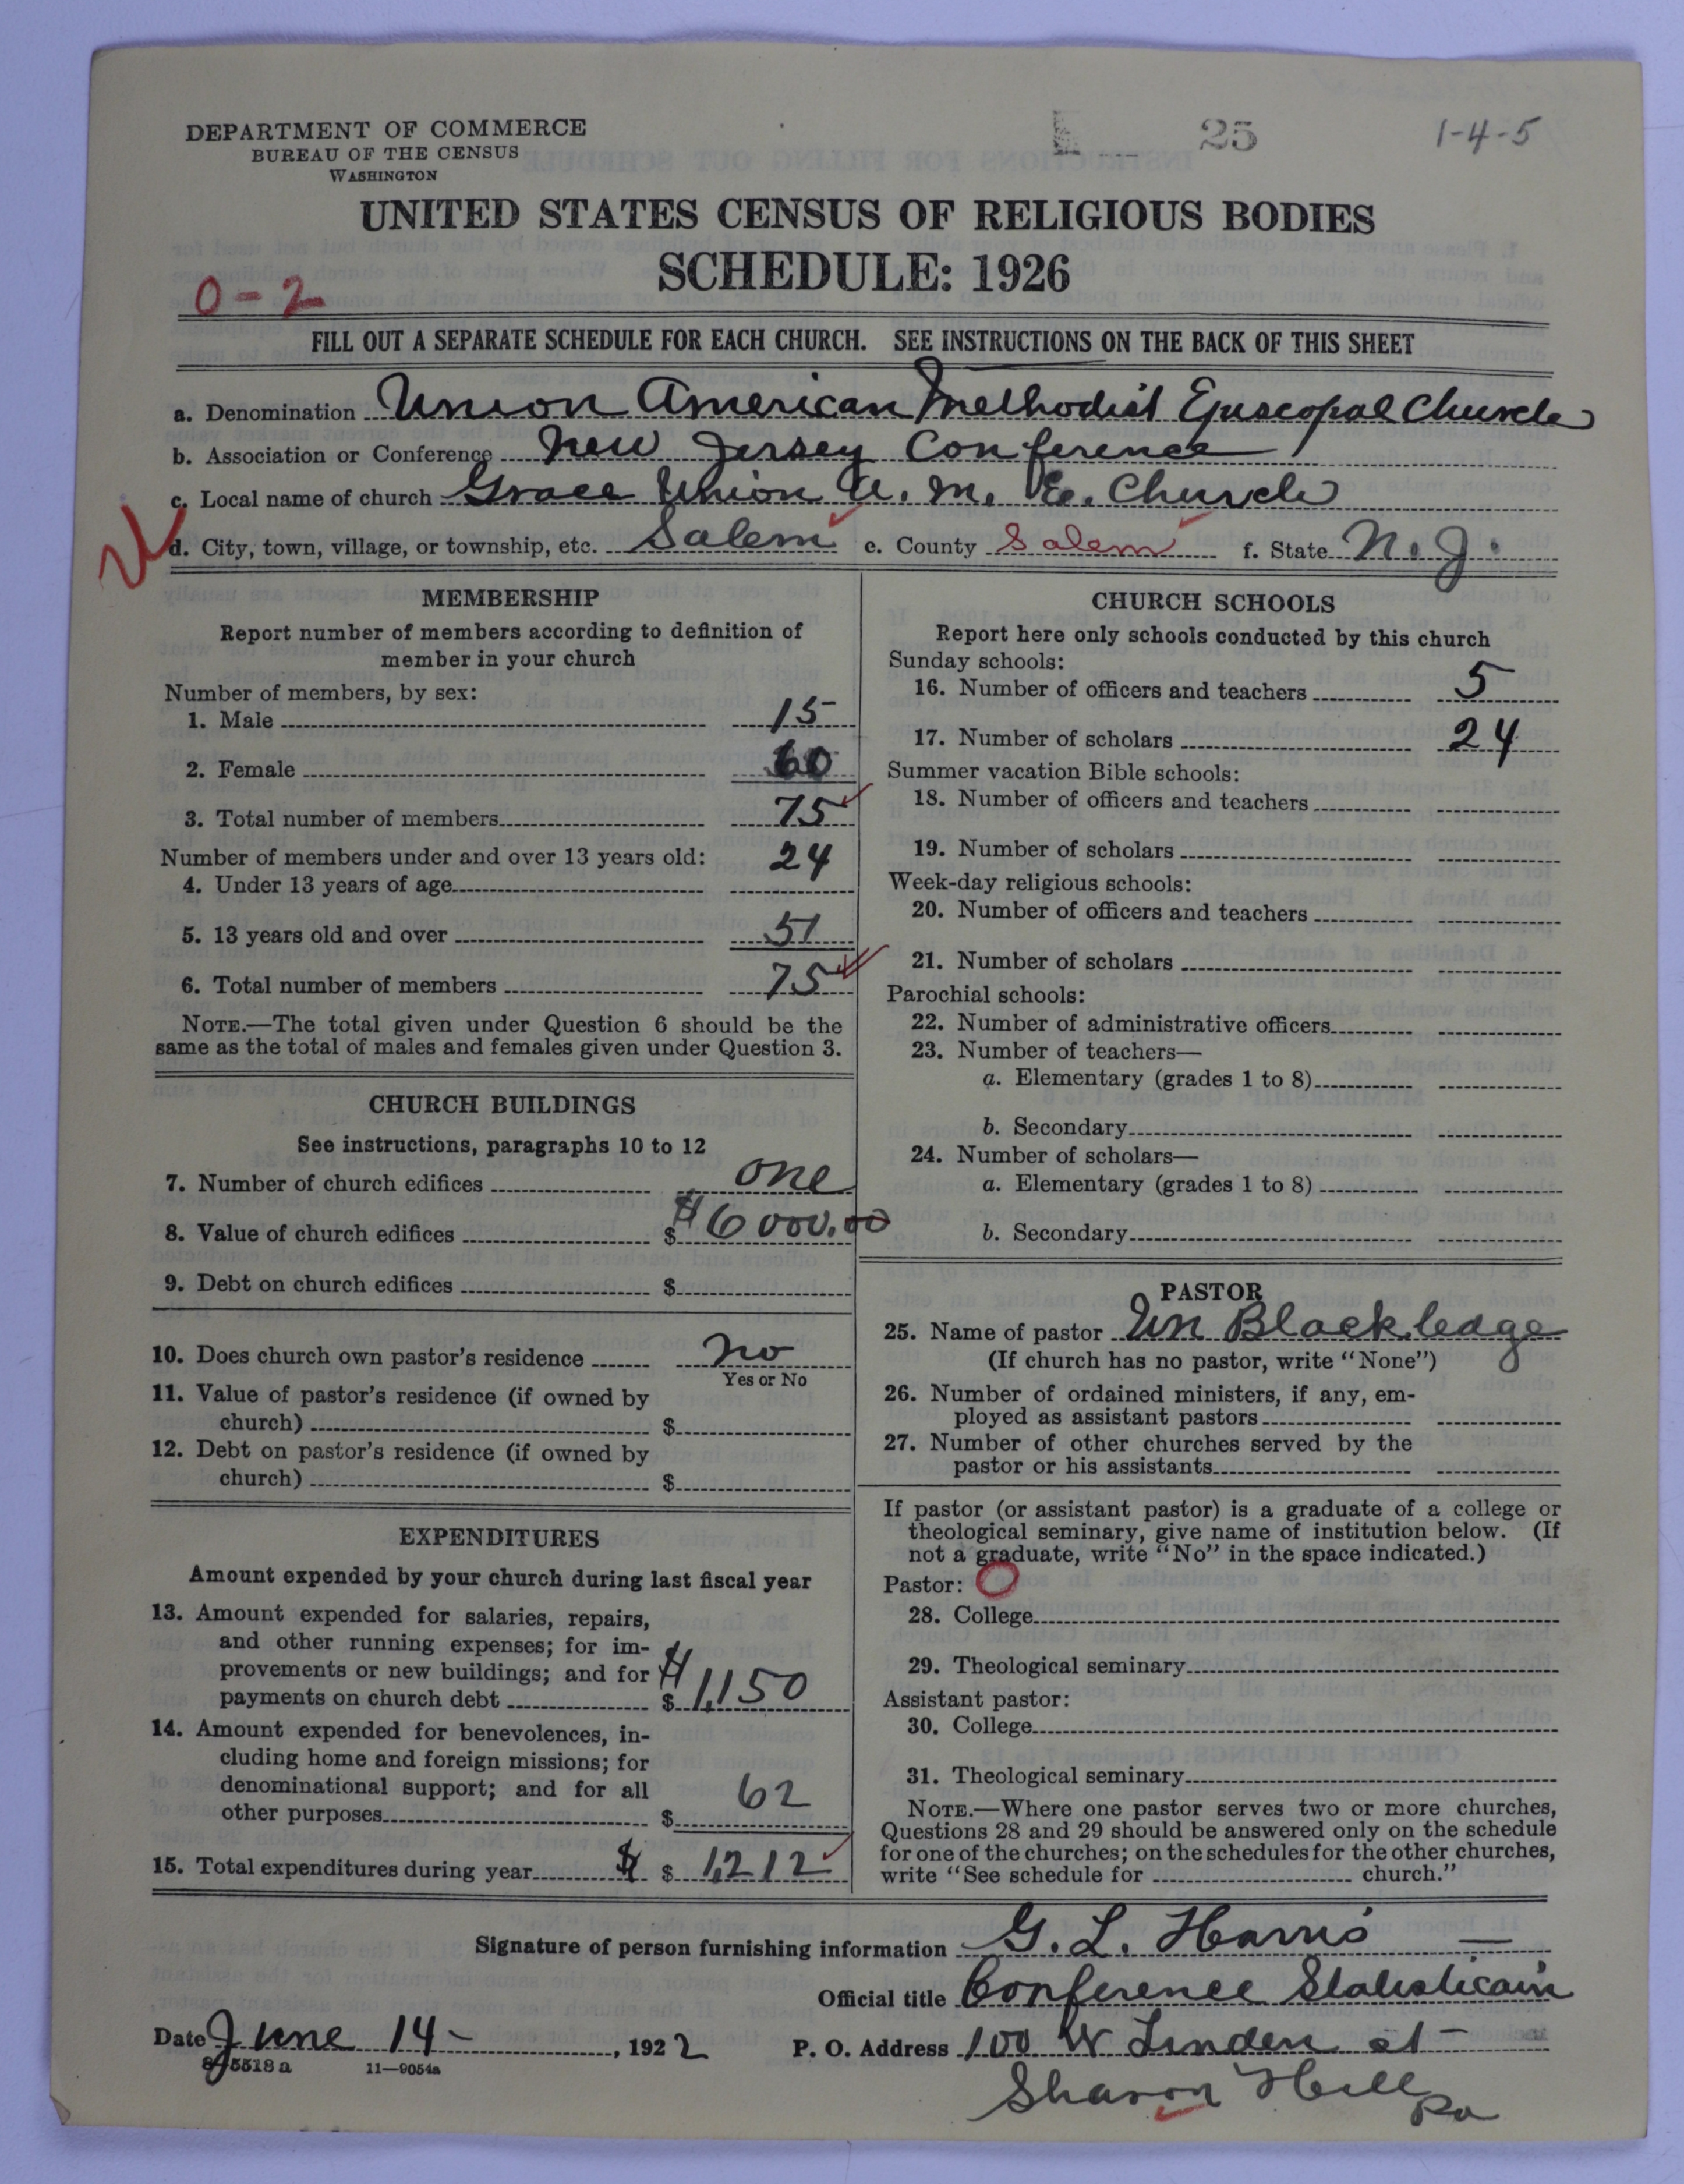 DEPARTMENT OF COMMERCE
BUREAU OF THE CENSUS
WASHINGTON
25
1-4-5
UNITED STATES CENSUS OF RELIGIOUS BODIES
SCHEDULE: 1926
0-2
FILL OUT A SEPARATE SCHEDULE FOR EACH CHURCH. SEE INSTRUCTIONS ON THE BACK OF THIS SHEET
a. Denomination Union American Methodist Episcopal Church
b. Association or Conference New Jersey Conference
c. Local name of church Grace Union A. M. E. Church
d. City, town, village, or township, etc. Salem e. County Salem f. State N. J.
MEMBERSHIP
Report number of members according to definition of
member in your church
Number of members, by sex:
1. Male 15
2. Female 60
3. Total number of members 75
Number of members under and over 13 years old:
4. Under 13 years of age 24
5. 13 years old and over 51
6. Total number of members 75
NOTE.—The total given under Question 6 should be the
same as the total of males and females given under Question 3.
CHURCH BUILDINGS
See instructions, paragraphs 10 to 12
7. Number of church edifices one
8. Value of church edifices $ $6000.00
9. Debt on church edifices $
10. Does church own pastor's residence no
Yes or No
11. Value of pastor's residence (if owned by
church) $
12. Debt on pastor's residence (if owned by
church) $
EXPENDITURES
Amount expended by your church during last fiscal year
13. Amount expended for salaries, repairs,
and other running expenses; for im-
provements or new buildings; and for
payments on church debt $ $1,150
14. Amount expended for benevolences, in-
cluding home and foreign missions; for
denominational support; and for all
other purposes $ 62
15. Total expenditures during year $ $ 1,212
CHURCH SCHOOLS
Report here only schools conducted by this church
Sunday schools:
16. Number of officers and teachers 5
17. Number of scholars 24
Summer vacation Bible schools:
18. Number of officers and teachers
19. Number of scholars
Week-day religious schools:
20. Number of officers and teachers
21. Number of scholars
Parochial schools:
22. Number of administrative officers
23. Number of teachers—
a. Elementary (grades 1 to 8)
b. Secondary
24. Number of scholars—
a. Elementary (grades 1 to 8)
b. Secondary
PASTOR
25. Name of pastor Wm Blackledge
(If church has no pastor, write "None")
26. Number of ordained ministers, if any, em-
ployed as assistant pastors
27. Number of other churches served by the
pastor or his assistants
If pastor (or assistant pastor) is a graduate of a college or
theological seminary, give name of institution below. (If
not a graduate, write "No" in the space indicated.)
Pastor: O
28. College
29. Theological seminary
Assistant pastor:
30. College
31. Theological seminary
NOTE.—Where one pastor serves two or more churches,
Questions 28 and 29 should be answered only on the schedule
for one of the churches; on the schedules for the other churches,
write "See schedule for church."
Signature of person furnishing information G. L. Harris
Official title Conference Statisticain
Date June 14 - , 1922 P. O. Address 100 W Linden st
8-5518a 11—9054a
Sharon Hill Pa